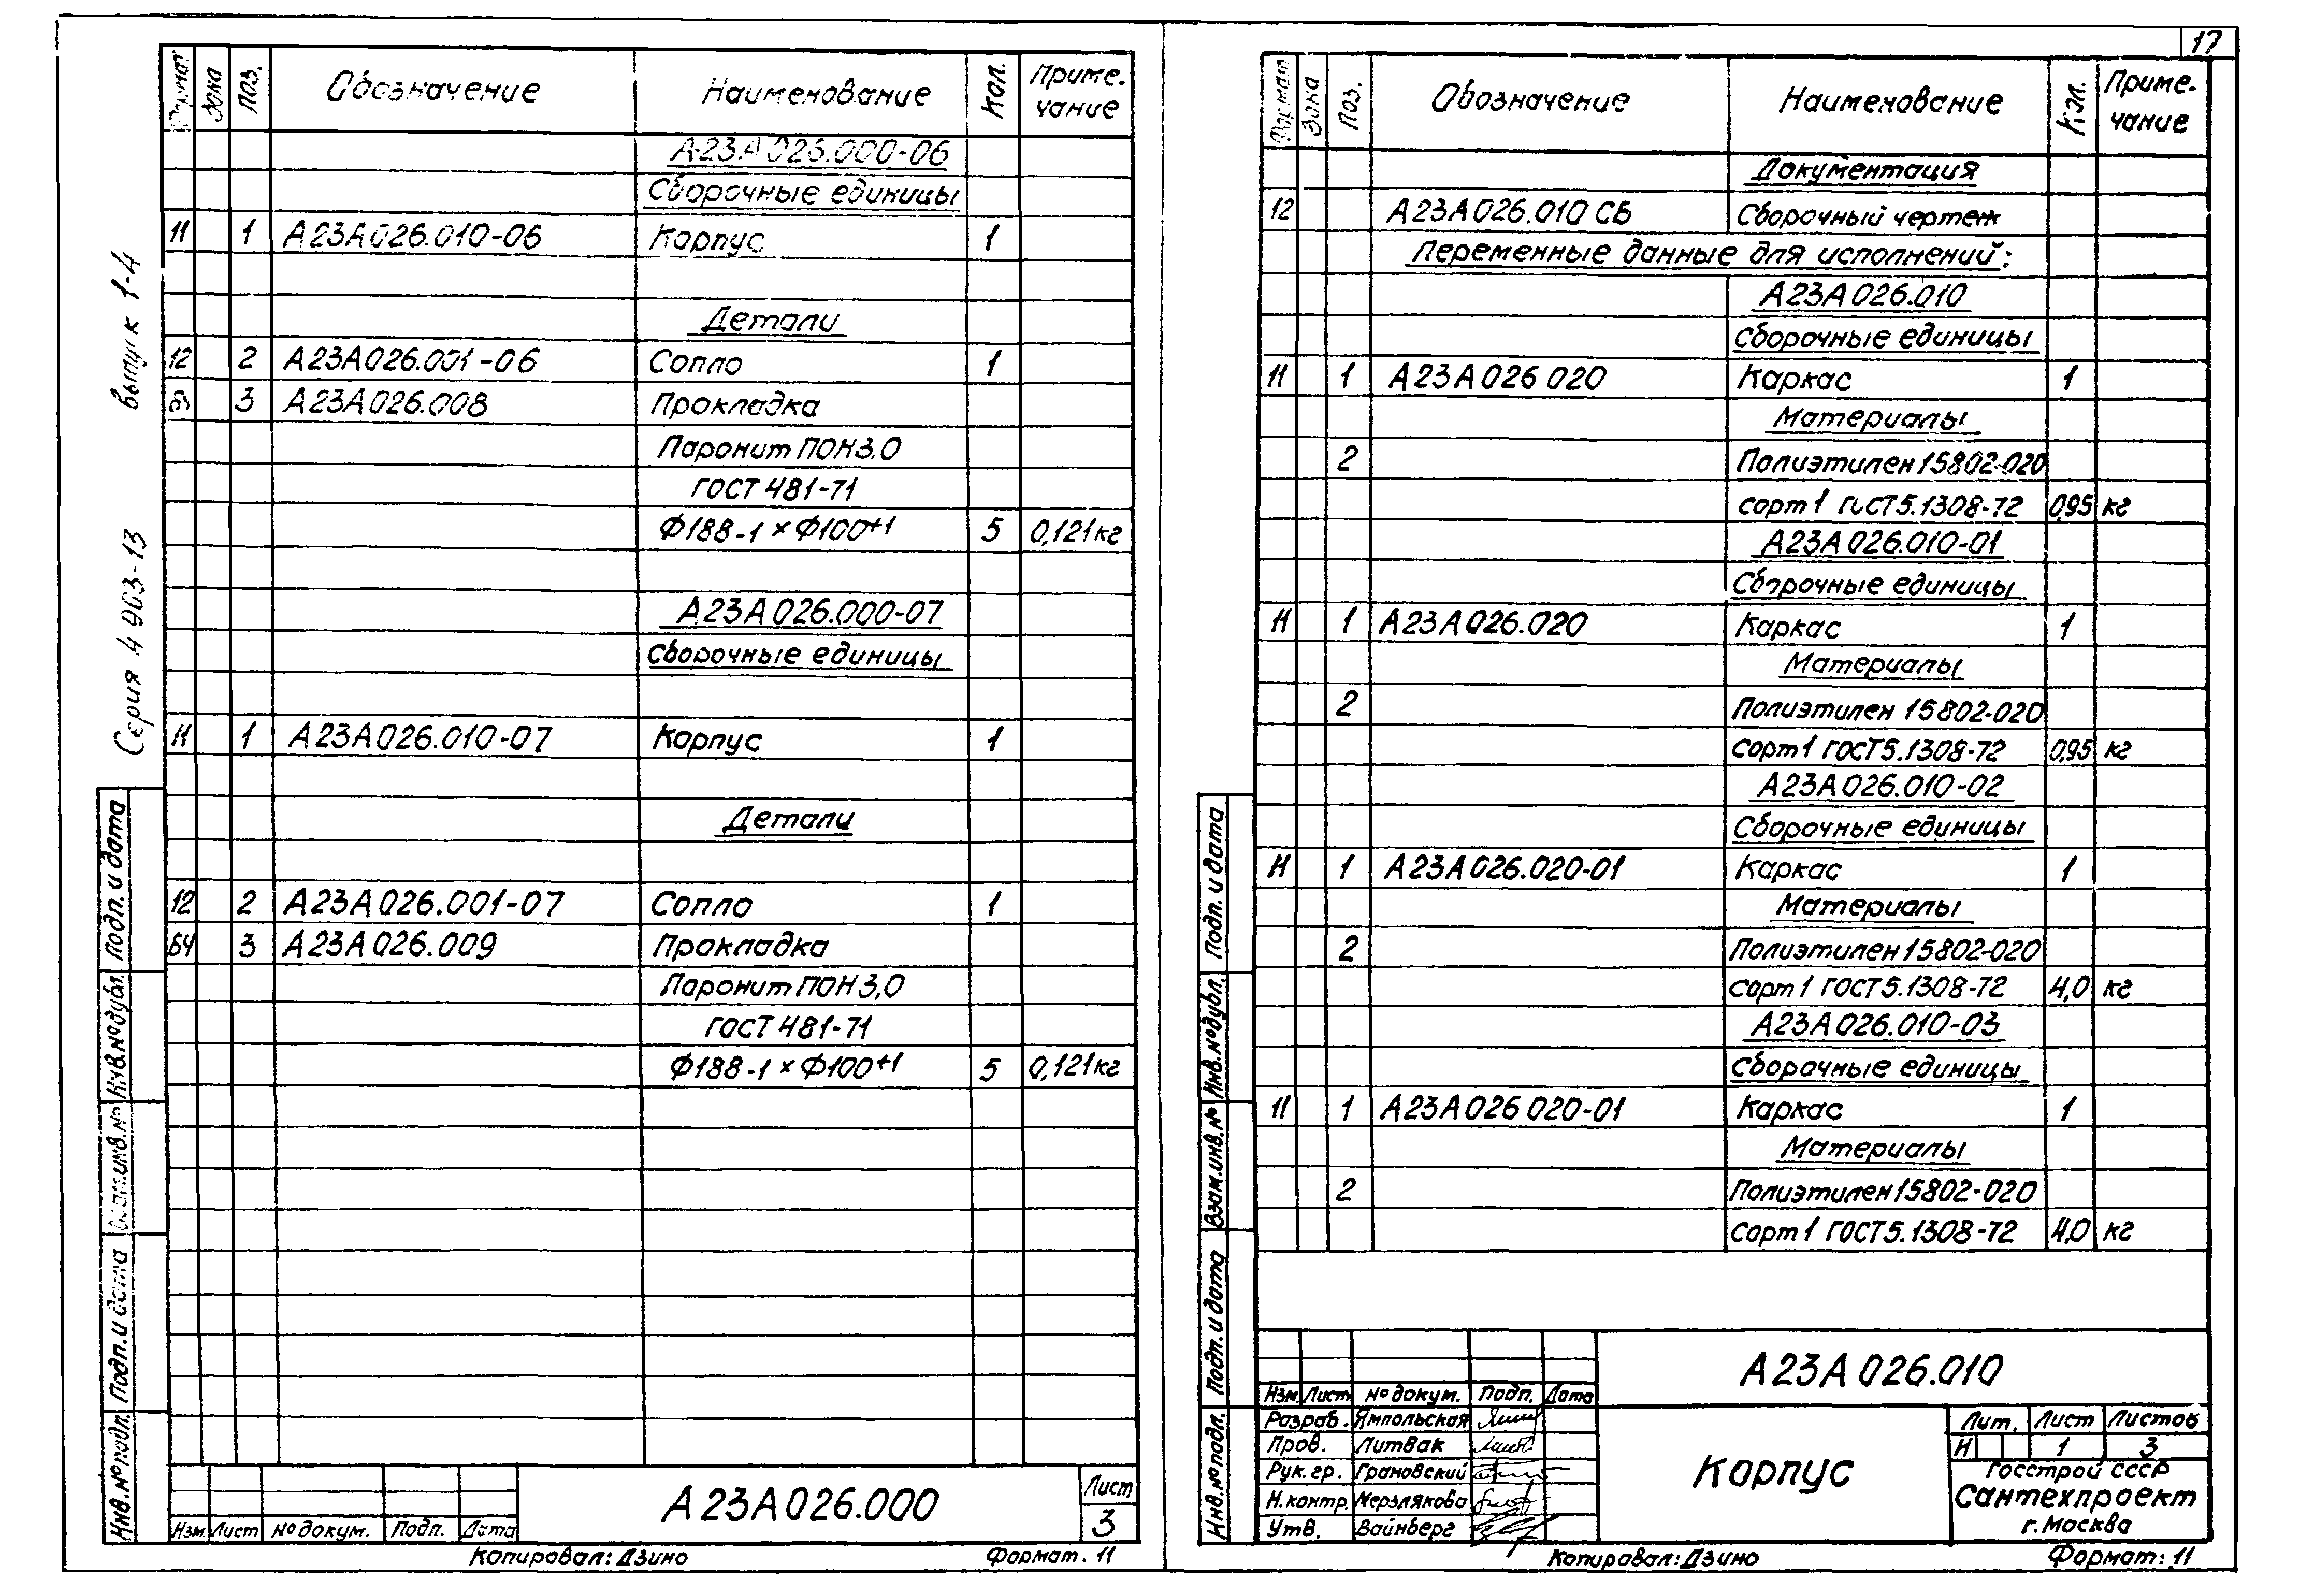 17
Серия 4 903-13 выпуск 1-4
Формат Зона Поз. Обозначение Наименование Кол. Приме-
чание
А23А026.000-06
Сборочные единицы
11 1 А23А026.010-06 Корпус 1
Детали
12 2 А23А026.001-06 Сопло 1
БЧ 3 А23А026.008 Прокладка
Паронит ПОН3,0
ГОСТ 481-71
Ф188-1 × Ф100+1 5 0,121кг
А23А026.000-07
Сборочные единицы
11 1 А23А026.010-07 Корпус 1
Детали
12 2 А23А026.001-07 Сопло 1
БЧ 3 А23А026.009 Прокладка
Паронит ПОН3,0
ГОСТ 481-71
Ф188-1 × Ф100+1 5 0,121кг
Инв.№подл. Подп. и дата Взам.инв.№ Инв.№дубл. Подп. и дата
Изм. Лист № докум. Подп. Дата
А23А026.000
Лист
3
Копировал: Дзино Формат. 11
Формат Зона Поз. Обозначение Наименование Кол. Приме-
чание
Документация
12 А23А026.010 СБ Сборочный чертеж
Переменные данные для исполнений:
А23А026.010
Сборочные единицы
11 1 А23А026 020 Каркас 1
Материалы
2 Полиэтилен 15802-020
сорт 1 ГОСТ 5.1308-72 0,95 кг
А23А026.010-01
Сборочные единицы
11 1 А23А026.020 Каркас 1
Материалы
2 Полиэтилен 15802-020
Сорт 1 ГОСТ 5.1308-72 0,95 кг
А23А026.010-02
Сборочные единицы
11 1 А23А026.020-01 Каркас 1
Материалы
2 Полиэтилен 15802-020
Сорт 1 ГОСТ 5.1308-72 4,0 кг
А23А026.010-03
Сборочные единицы
11 1 А23А026 020-01 Каркас 1
Материалы
2 Полиэтилен 15802-020
Сорт 1 ГОСТ 5.1308-72 4,0 кг
Инв.№подл. Подп. и дата Взам.инв.№ Инв.№дубл. Подп. и дата
А23А026.010
Изм. Лист № докум. Подп. Дата
Разраб. Ямпольская
Пров. Литвак
Рук. гр. Грановский
Н. контр. Мерзлякова
Утв. Вайнберг
Корпус
Лит. Лист Листов
И 1 3
Госстрой СССР
Сантехпроект
г. Москва
Копировал: Дзино Формат: 11